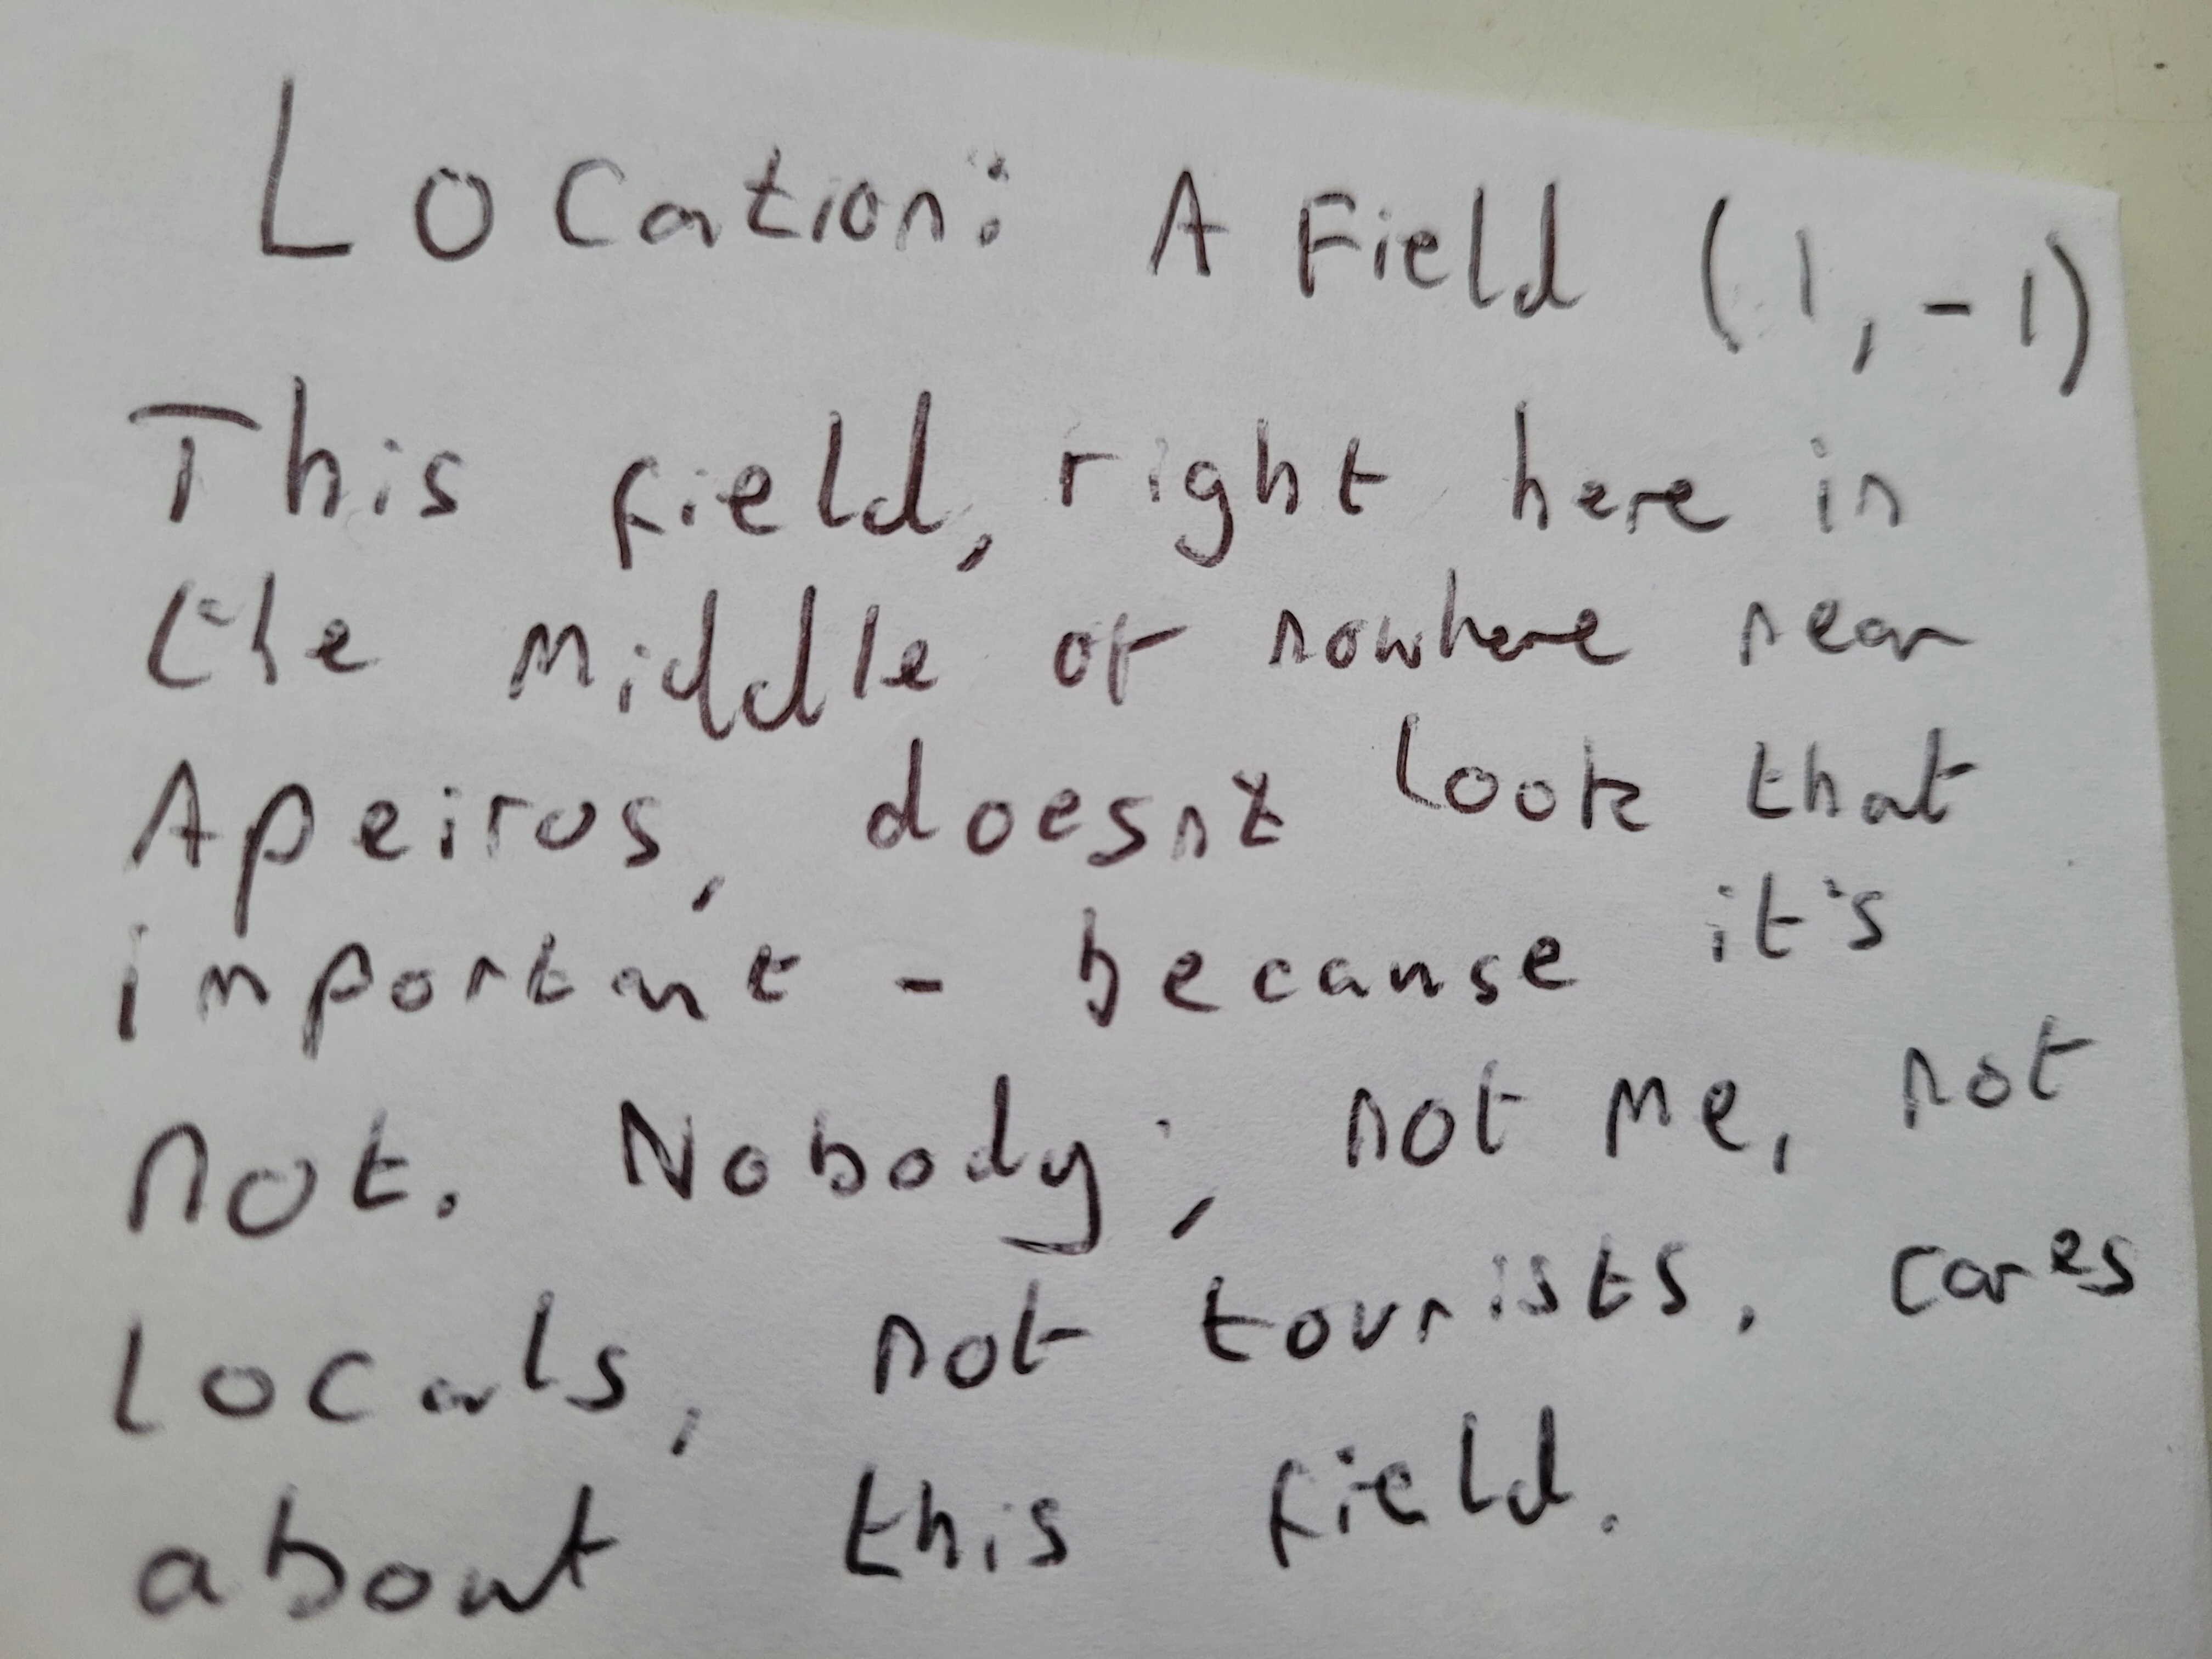 Location: A Field (1,-1)
This field, right here in
the middle of nowhere near
Apeiros, doesnt look that
important - because it's
not. Nobody; not me, not
locals, not tourists, cares
about this field.